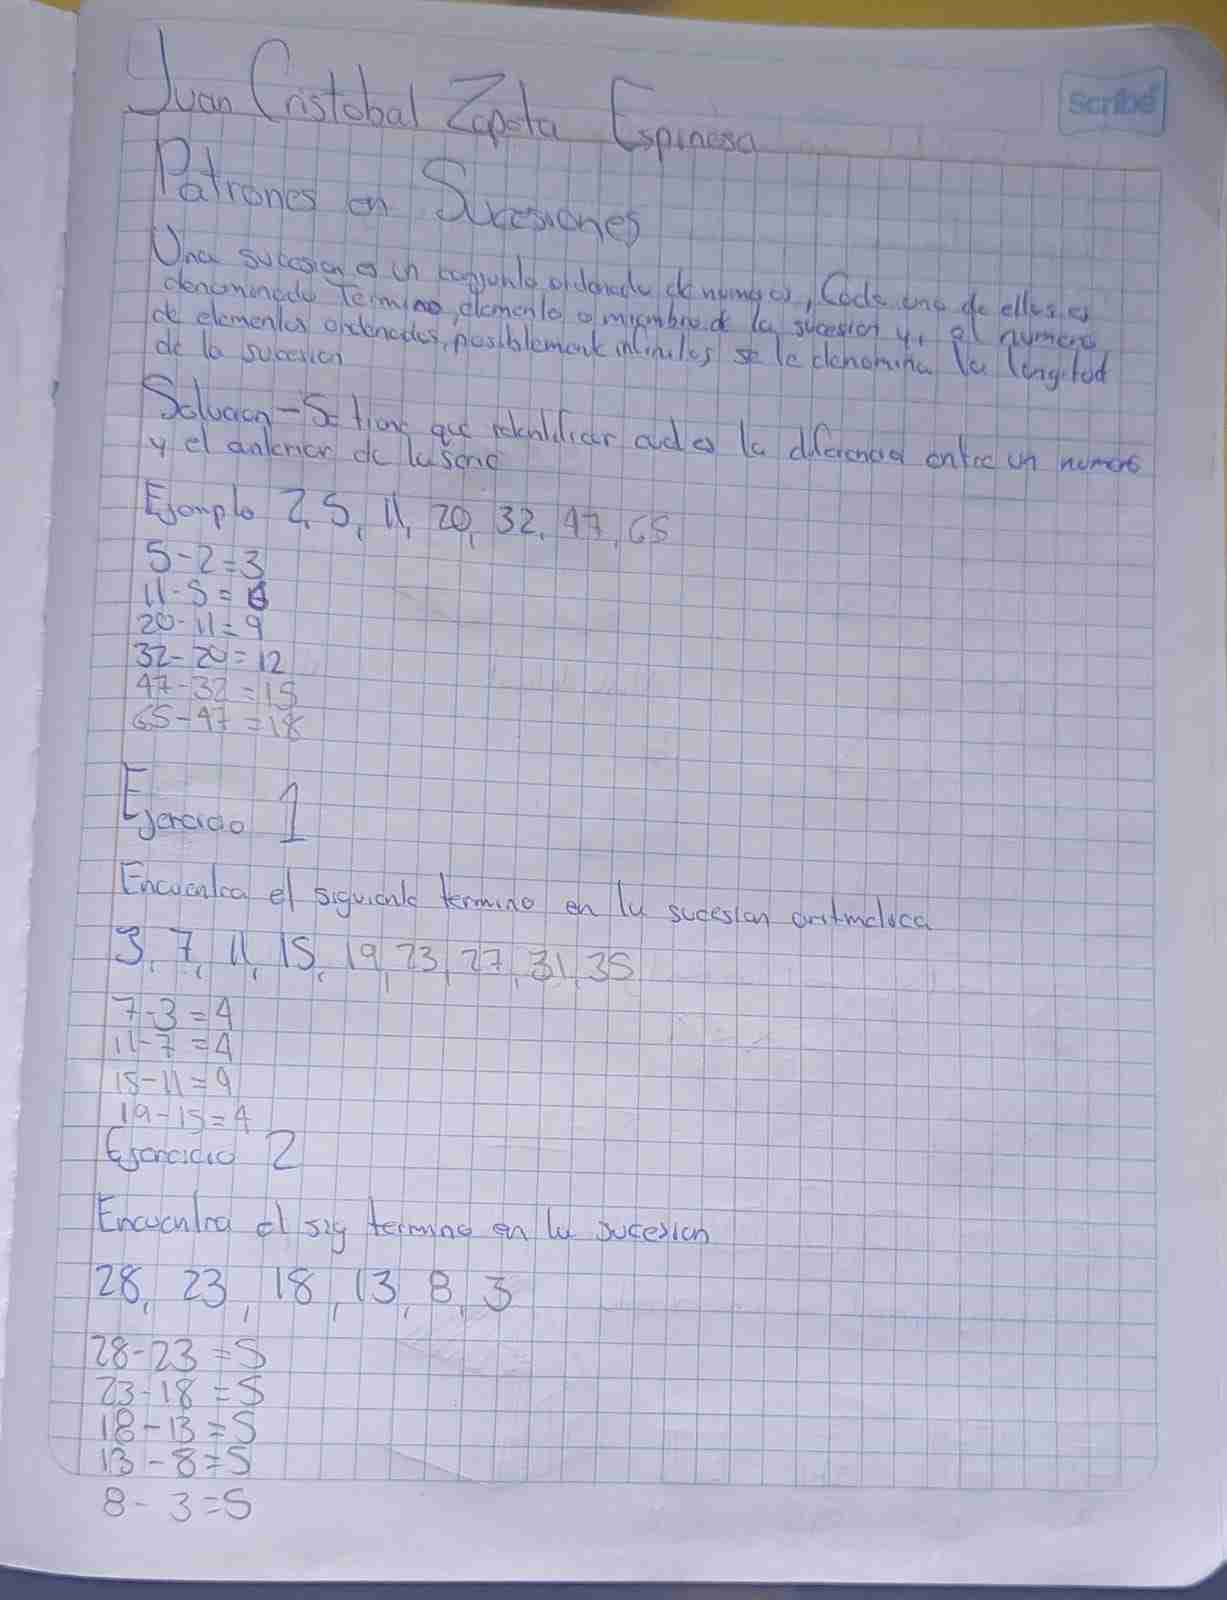 Juan Cristobal Zapata Espinosa
Scribe
Patrones en Sucesiones
Una sucesion es un conjunto ordenado de numeros, Cada uno de ellos es
denominado Termino, elemento o miembro de la sucesion y, el numero
de elementos ordenados, posiblemente infinitos se le denomina la longitud
de la sucesion
Solucion - Se tiene que identificar cual es la diferencia entre un numero
y el anterior de la serie
Ejemplo 2, 5, 11, 20, 32, 47, 65
5-2=3
11-5=6
20-11=9
32-20=12
47-32=15
65-47=18
Ejercicio 1
Encuentra el siguiente termino en la sucesion aritmetica
3, 7, 11, 15, 19, 23, 27, 31, 35
7-3=4
11-7=4
15-11=4
19-15=4
Ejercicio 2
Encuentra el sig termino en la sucesion
28, 23, 18, 13, 8, 3
28-23=5
23-18=5
18-13=5
13-8=5
8-3=5